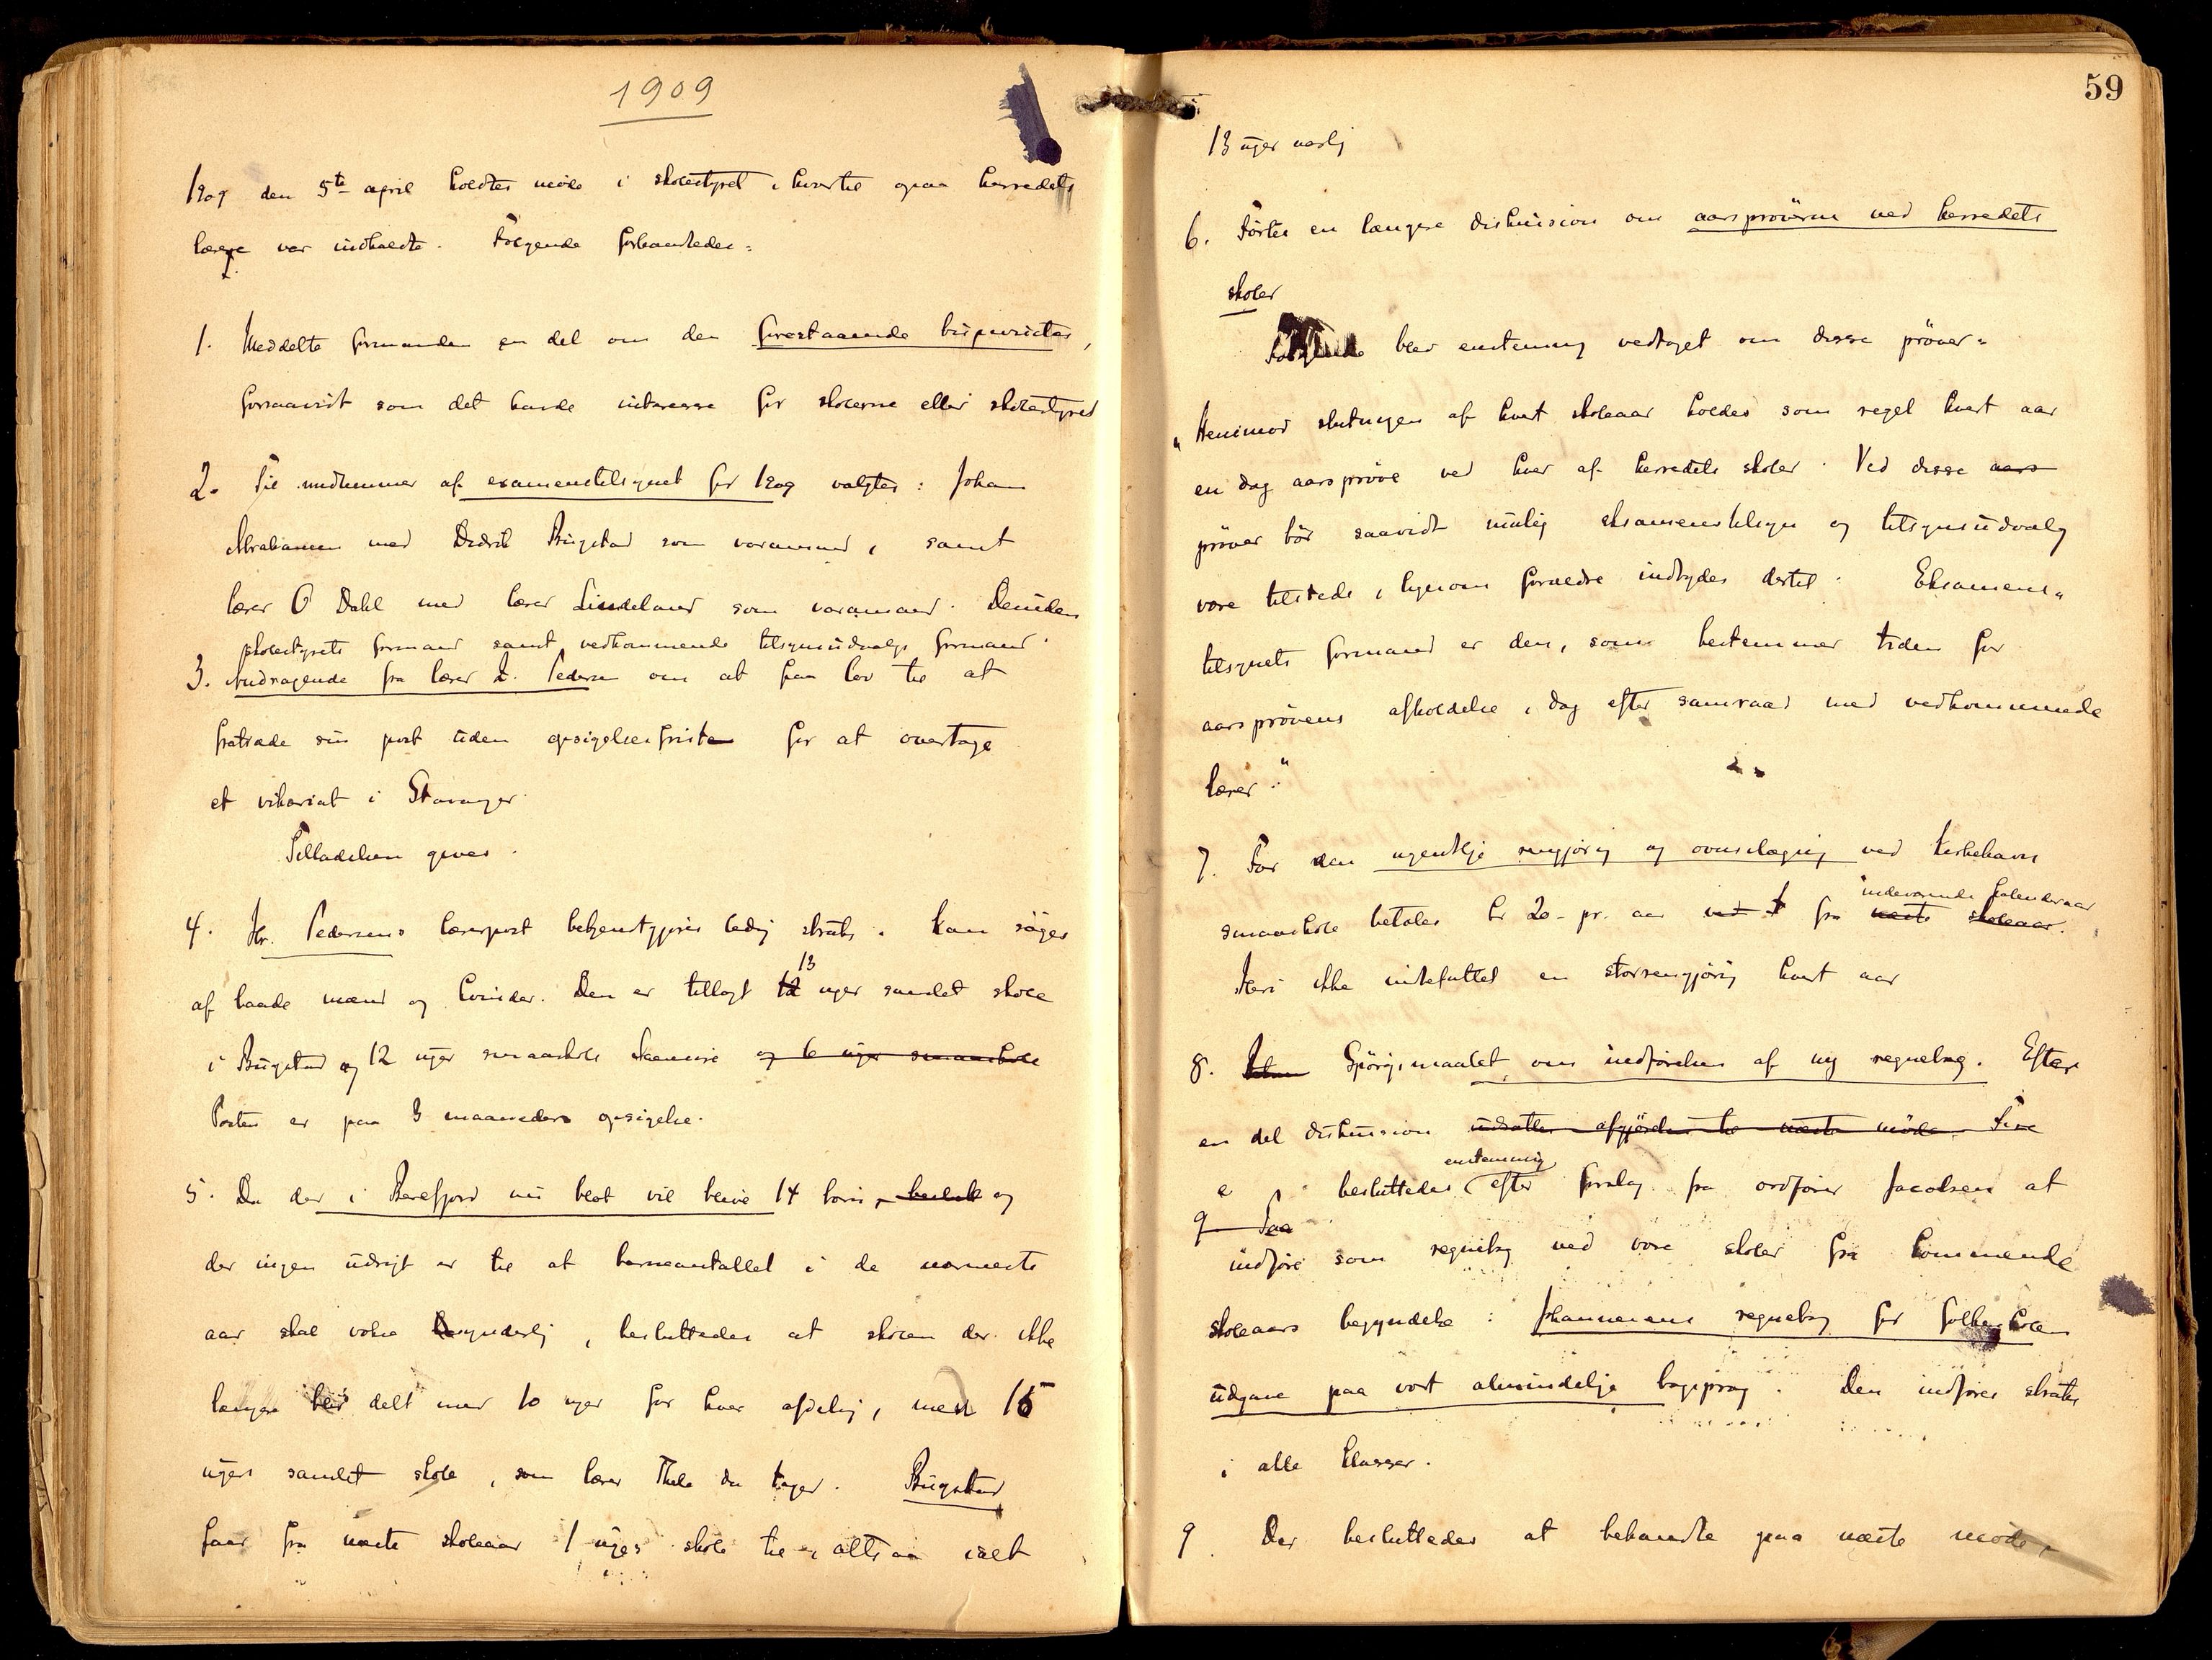 1909
1909 den 5te april holdtes møde i skolestyret, hvortil ogsaa herredets
lærere var indkaldte. Følgende forhandledes:
1. Meddelte formanden en del om den forestaaende bispevisitas,
forsaavidt som det havde interesse for skolerne eller skolestyret
2. Til medlemmer af examenstilsynet for 1909 valgtes: Johan
Abrahamsen med Didrik Birgstad som varamand, samt
lærer O Dahl med lærer Lindeland som varamand. Desuden
skolestyrets formand samt vedkommende tilsynsudvalgs formand.
3. Andragende fra lærer L. Pedersen om at faa lov til at
fratræde sin post uden opsigelsesfrist for at overtage
et vikariat i Stavanger.
Tilladelsen gives.
4. Hr. Pedersens lærerpost bekjentgjøres ledig straks. Kan søges
af baade mænd og kvinder. Den er tillagt 12 13 uger samlet skole
i Birgstad og 12 uger smaaskole og 6 uger smaaskole
Posten er paa 3 maaneders opsigelse.
5. Da der i Berefjord nu blot vil blive 14 børn, beslut og
der ingen udsigt er til at barneantallet i de nærmeste
aar skal vokse synderlig, besluttedes at skolen der ikke
længere blir delt med 10 uger for hver afdeling, men 16
ugers samlet skole, som lærer Thele da tager. Birgstad
faar fra næste skoleaar 1 uges skole til, altsaa ialt
59
13 uger aarlig
6. Førtes en længere diskussion om aarsprøverne ved herredets
skoler
Følgende blev enstemmig vedtaget om disse prøver:
"Henimod slutningen af hvert skoleaar holdes som regel hvert aar
en dag aarsprøve ved hver af herredets skoler. Ved disse aars
prøver bør saavidt mulig eksamenstilsyn og tilsynsudvalg
være tilstede, ligesom forældre indbydes dertil. Eksamens-
tilsynets formand er den, som bestemmer tiden for
aarsprøvens afholdelse, dog efter samraad med vedkommende
lærer."
7. For den ugentlige rengjøring og ovnsilægning ved Kirkehavn
smaaskole betales kr 20- pr. aar fra næste skoleaar. indeværende kalenderaar
Heri ikke indbefattet en storrengjøring hvert aar
8. Spørgsmaalet om indførelsen af ny regnebog. Efter
en del diskussion udsattes afgjørelsen til næste møde. Til
besluttedes enstemmig efter forslag fra ordfører Jacobsen at
9 Paa
indføre som regnebog ved vore skoler fra kommende
skoleaars begyndelse: Johannesens regnebog for folkeskolen
udgave paa vort almindelige bogsprog. Den indføres straks
i alle klasser.
9. Der besluttedes at behandle paa næste møde,